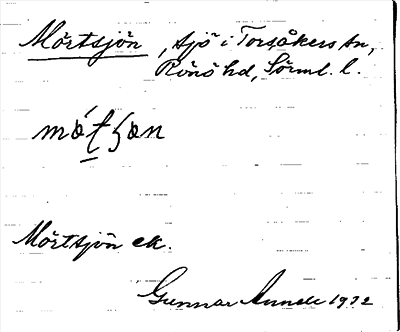 Mörtsjön, sjö i Torsåkers sn,
Rönö hd, Sörml. l.
Mörtsjön ek.
Gunnar 1932